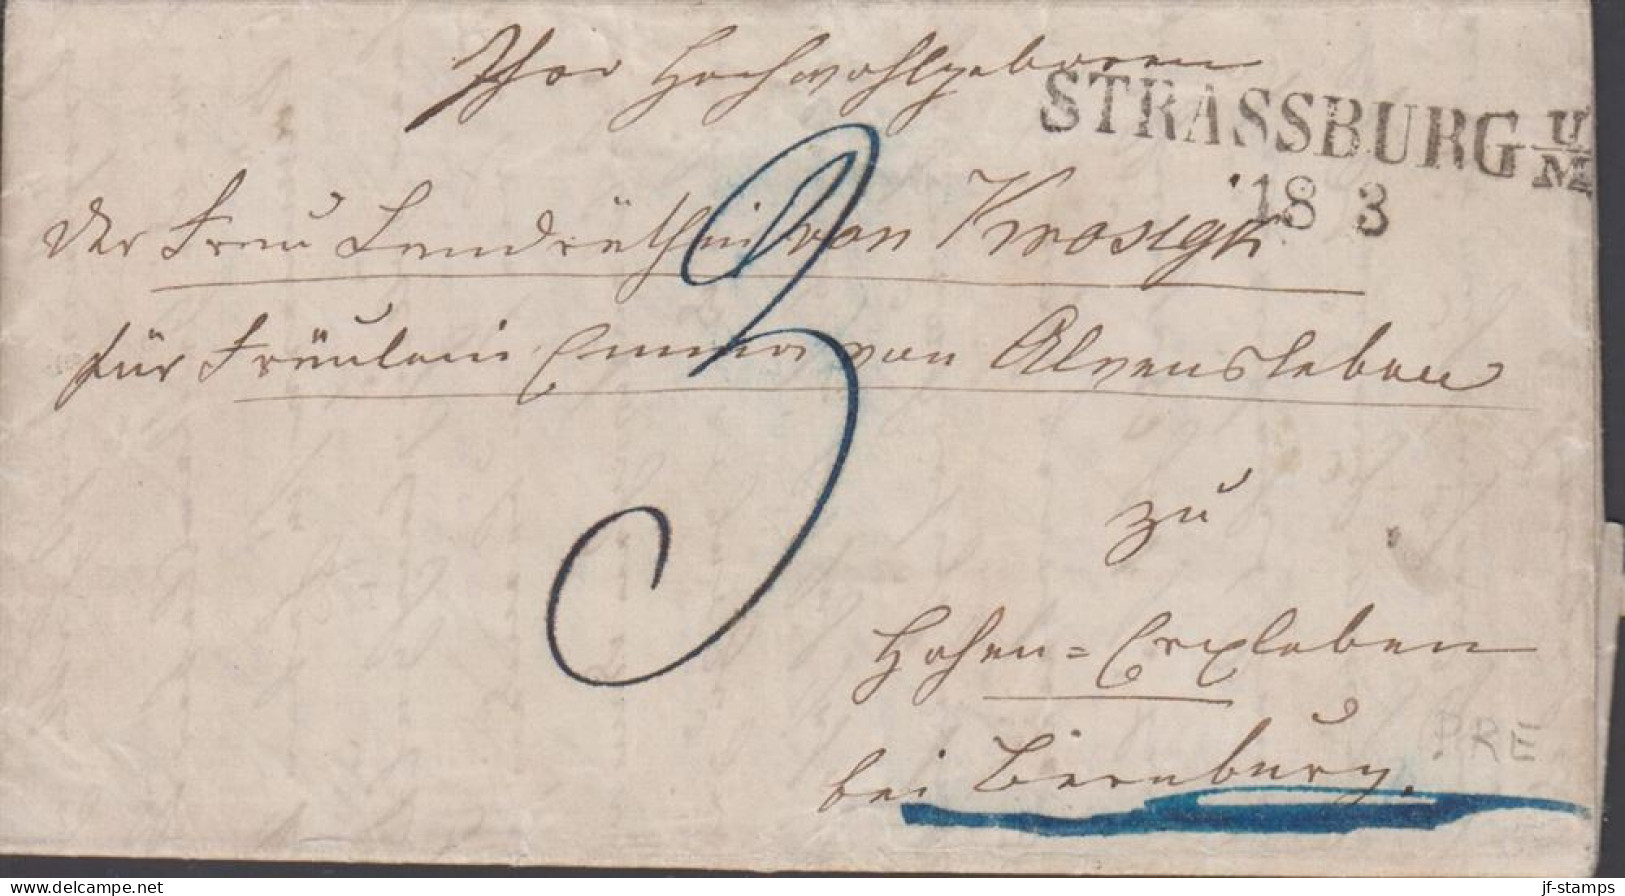 Ihro Hochwohlgeboren
STRASSBURG U/M
18 3
der Frau Landräthin von Krosigk
für Fräulein Emma von Alvensleben
3
zu
Hohen=Erxleben
bei Bernburg.
PRE
www.delcampe.net
jf-stamps